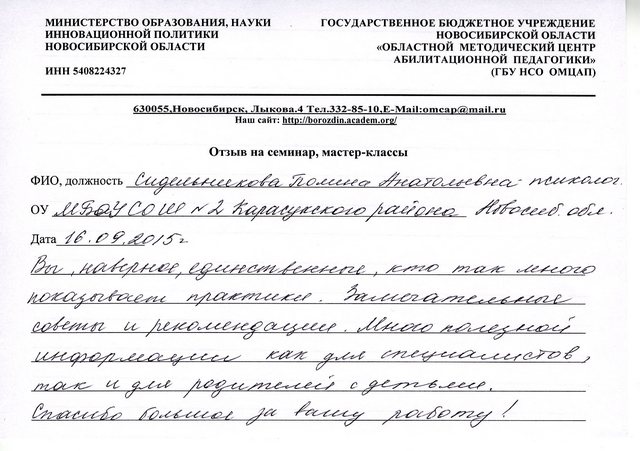 МИНИСТЕРСТВО ОБРАЗОВАНИЯ, НАУКИ
ИННОВАЦИОННОЙ ПОЛИТИКИ
НОВОСИБИРСКОЙ ОБЛАСТИ
ИНН 5408224327
ГОСУДАРСТВЕННОЕ БЮДЖЕТНОЕ УЧРЕЖДЕНИЕ
НОВОСИБИРСКОЙ ОБЛАСТИ
«ОБЛАСТНОЙ МЕТОДИЧЕСКИЙ ЦЕНТР
АБИЛИТАЦИОННОЙ ПЕДАГОГИКИ»
(ГБУ НСО ОМЦАП)
630055,Новосибирск, Лыкова.4 Тел.332-85-10,E-Mail:omcap@mail.ru
Наш сайт: http://borozdin.academ.org/
Отзыв на семинар, мастер-классы
ФИО, должность Сидельникова Полина Анатольевна - психолог.
ОУ МБОУ СОШ №2 Карасукского района Новосиб. обл.
Дата 16.09.2015г
Вы, наверное, единственные, кто так много
показывает практики. Замечательные
советы и рекомендации. Много полезной
информации как для специалистов,
так и для родителей с детьми.
Спасибо большое за вашу работу!